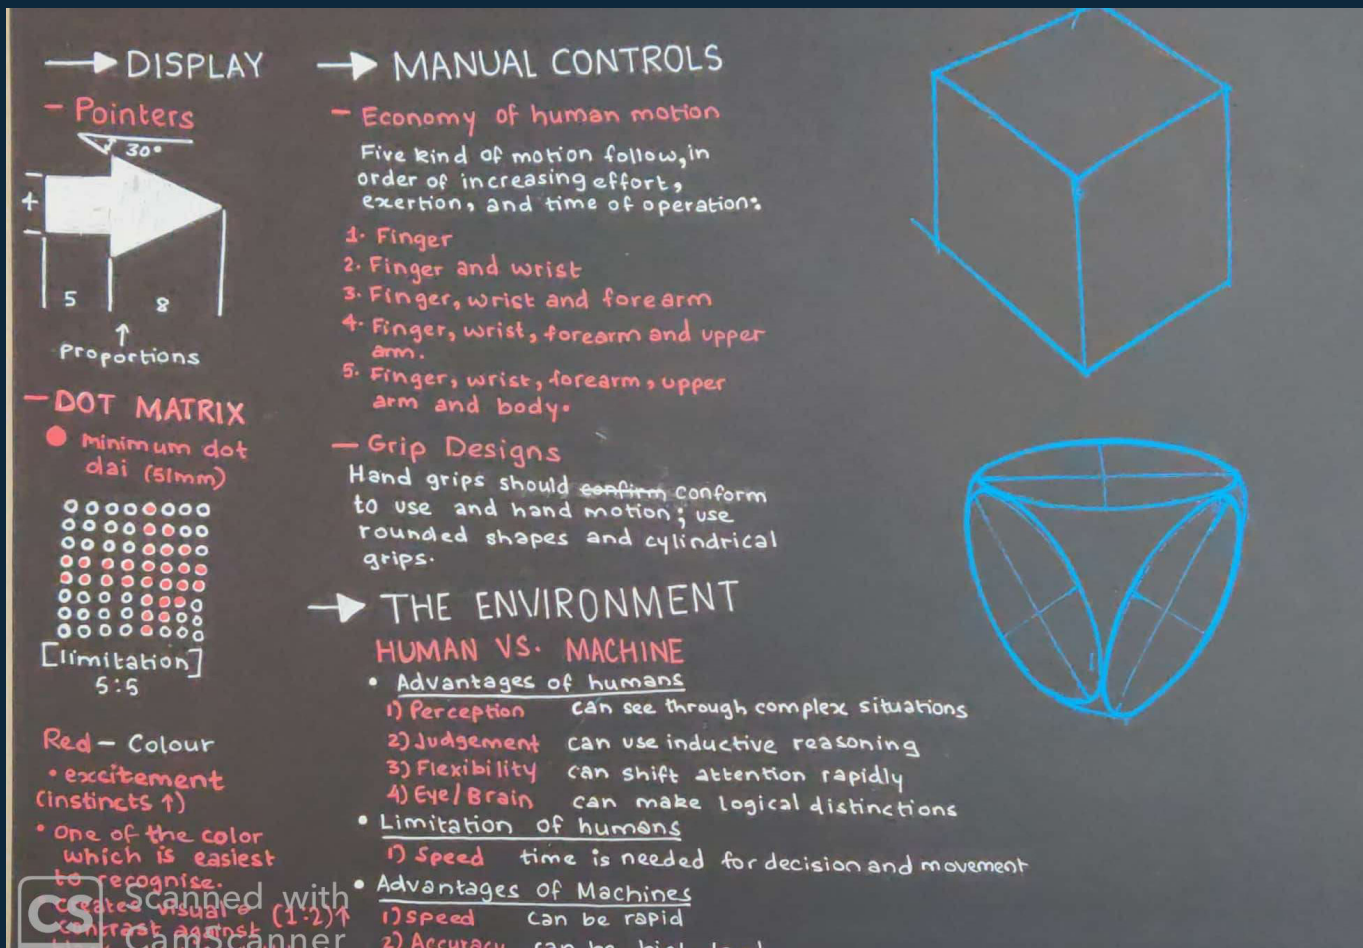 DISPLAY
- Pointers
30°
4
5
8
↑
Proportions
- DOT MATRIX
minimum dot
dai (51mm)
[limitation]
5:5
Red - Colour
• excitement
(instincts ↑)
• One of the color
which is easiest
to recognise.
created visual
(1·2)↑
contrast against
MANUAL CONTROLS
- Economy of human motion
Five kind of motion follow, in
order of increasing effort,
exertion, and time of operation:
1. Finger
2. Finger and wrist
3. Finger, wrist and forearm
4. Finger, wrist, forearm and upper
arm.
5. Finger, wrist, forearm, upper
arm and body.
- Grip Designs
Hand grips should confirm conform
to use and hand motion; use
rounded shapes and cylindrical
grips.
THE ENVIRONMENT
HUMAN VS. MACHINE
• Advantages of humans
1) Perception can see through complex situations
2) Judgement can use inductive reasoning
3) Flexibility can shift attention rapidly
4) Eye/Brain can make logical distinctions
• Limitation of humans
1) Speed time is needed for decision and movement
• Advantages of Machines
1) speed can be rapid
2) Accuracy can be
CS
Scanned with
CamScanner